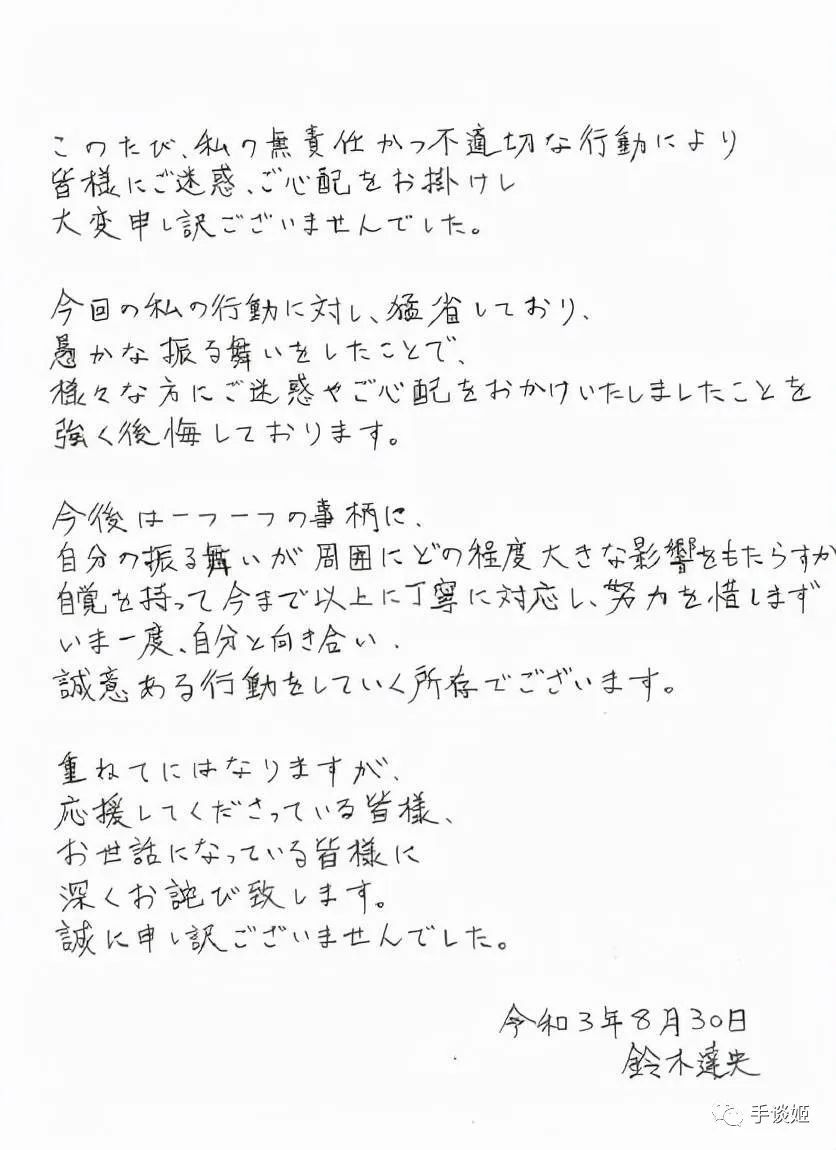 このたび、私の無責任かつ不適切な行動により
皆様にご迷惑、ご心配をお掛けし
大変申し訳ございませんでした。
今回の私の行動に対し、猛省しており、
愚かな振る舞いをしたことで、
様々な方にご迷惑やご心配をおかけいたしましたことを
強く後悔しております。
今後は一つ一つの事柄に、
自分の振る舞いが周囲にどの程度大きな影響をもたらすか
自覚を持って今まで以上に丁寧に対応し、努力を惜しまず
いま一度、自分と向き合い、
誠意ある行動をしていく所存でございます。
重ねてにはなりますが、
応援してくださっている皆様、
お世話になっている皆様に
深くお詫び致します。
誠に申し訳ございませんでした。
令和3年8月30日
鈴木達央
手谈姬